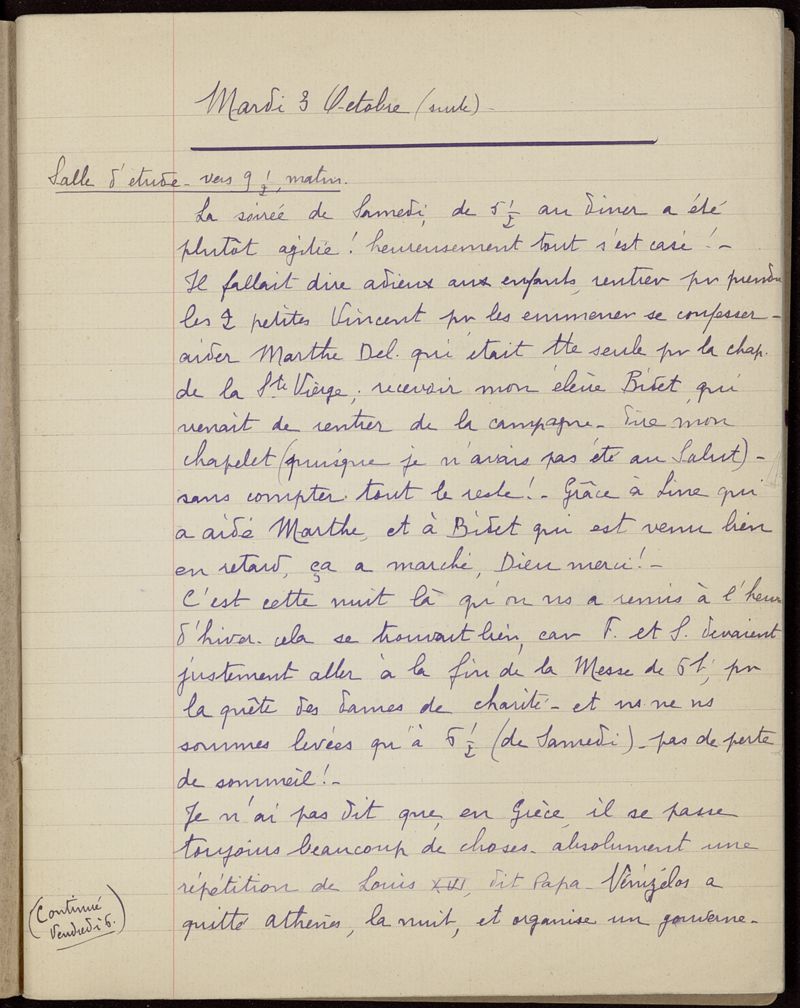 Mardi 3 Octobre (suite) -
Salle d'étude - vers 9 1/2, matin.
La soirée de Samedi, de 5 1/2 au dîner a été
plutôt agitée ! heureusement tout s'est casé ! -
Il fallait dire adieux aux enfants, rentrer pr prendre
les 2 petites Vincent pr les emmener se confesser -
aider Marthe Del. qui était tte seule pr la chap.
de la Ste Vierge ; recevoir mon élève Bidet qui
venait de rentrer de la campagne - dire mon
chapelet (puisque je n'avais pas été au Salut) -
sans compter tout le reste ! - Grâce à Line qui
a aidé Marthe, et à Bidet qui est venu bien
en retard, ça a marché, Dieu merci ! -
C'est cette nuit là qu'on ns a remis à l'heure
d'hiver - cela se trouvait bien, car F. et S. devaient
justement aller à la fin de la Messe de 6h, pr
la quête des dames de charité - et ns ne ns
sommes levées qu'à 6 1/2 (de Samedi) - pas de perte
de sommeil ! -
Je n'ai pas dit que, en Grèce, il se passe
toujours beaucoup de choses - absolument une
répétition de Louis XVI, dit Papa - Vénizélos a
quitté Athènes, la nuit, et organise un gouverne-
(Continué
Vendredi 6.)